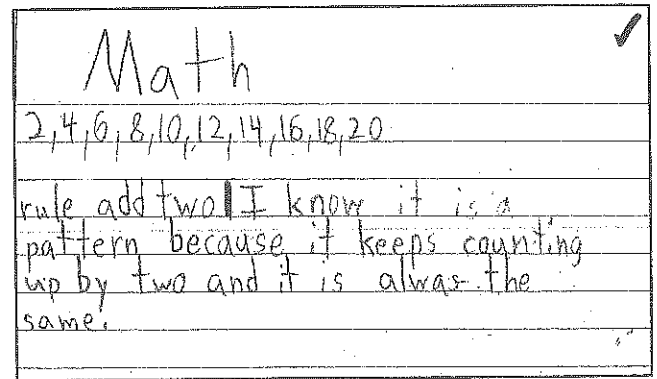 Math
2,4,6,8,10,12,14,16,18,20
rule add two I know it is a
pattern because it keeps counting
up by two and it is alwas the
same.